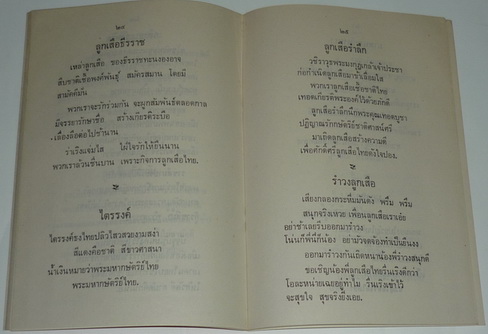 ๒๘
ลูกเสือธีรราช
เหล่าลูกเสือ ของธีรราชทะนงองอาจ
สืบชาติเชื้อพงศ์พันธุ์ สมัครสมาน โดยมี
สามัคคีมั่น
พวกเราจะรักร่วมกัน จะผูกสัมพันธ์ตลอดกาล
มีจรรยารักษาชื่อ สร้างเกียรติระบือ
เลื่องลือต่อไปช้านาน
ร่าเริงแจ่มใส ไมตรีจิตให้ยืนนาน
พวกเราล้วนชื่นบาน เพราะกิจการลูกเสือไทย.
ไตรรงค์
ไตรรงค์ธงไทยปลิวไสวสวยงามสง่า
สีแดงคือชาติ สีขาวศาสนา
น้ำเงินหมายว่าพระมหากษัตริย์ไทย
พระมหากษัตริย์ไทย.
๒๙
ลูกเสือรำลึก
วชิราวุธพระมงกุฎเกล้าเจ้าประชา
ก่อกำเนิดลูกเสือมาข้าเลื่อมใส
พวกเราลูกเสือเชื้อชาติไทย
เทอดเกียรติพระองค์ไว้ด้วยภักดี
ลูกเสือรำลึกนึกพระคุณเทอดบูชา
ปฏิญาณรักษ์กษัตริย์ชาติศาสน์ศรี
มาเถิดลูกเสือสร้างความดี
เพื่อศักดิ์ศรีลูกเสือไทยดังใจปอง.
รำวงลูกเสือ
เสียงกลองกระหึ่มมันดัง พรึ่ม พรึ่ม
สนุกจริงเหวย เพื่อนลูกเสือเราเอ๋ย
อย่าช้าเลยรีบออกมารำวง
โน่นก็พี่นี่ก็น้อง อย่ามัวจดจ้องทำเป็นยืนงง
ออกมารำวงกันเถิดหนาน้องพี่รำวงสนุกดี
ขอเชิญน้องพี่ลูกเสือไทยรื่นเริงดีกว่า
โอละหน่ายเฉยอยู่ทำไม รื่นเริงเข้าไว้
จะสุขใจ สุขจริงยิ่งเอย.